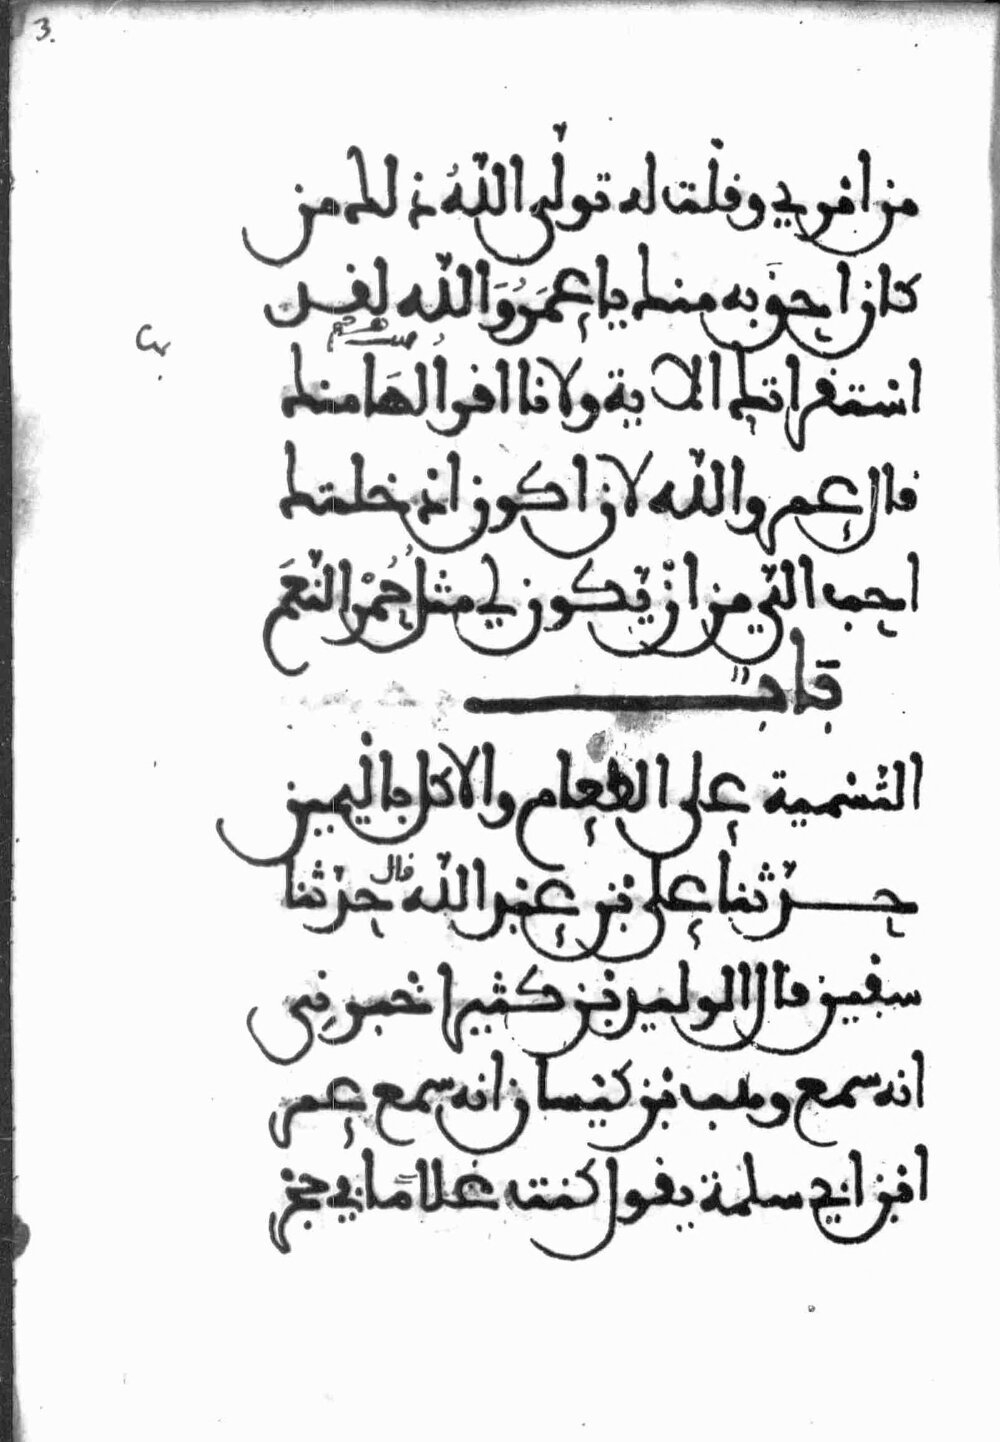 3.
من امري وقلت له تولى اللهُ ذلك من
كان احق به منك يا عمَرُ وَالله لقد
استقراتك الاية ولانا اقرا لهَا منك
قال عمر والله لان اكون ادخلتك
احب الي من ان يكون لي مثل حُمْرُ النّعَم
باب
التسْمية على الطعام والاكل باليمين
حدثنا على بن عبد الله قال حدثنا
سفين قال الوليد بن كثير اخبرنِى
انه سمع وهب بن كيسان انه سمع عمر
ابن ابي سلمة يقول كنت غلامًا في حجر